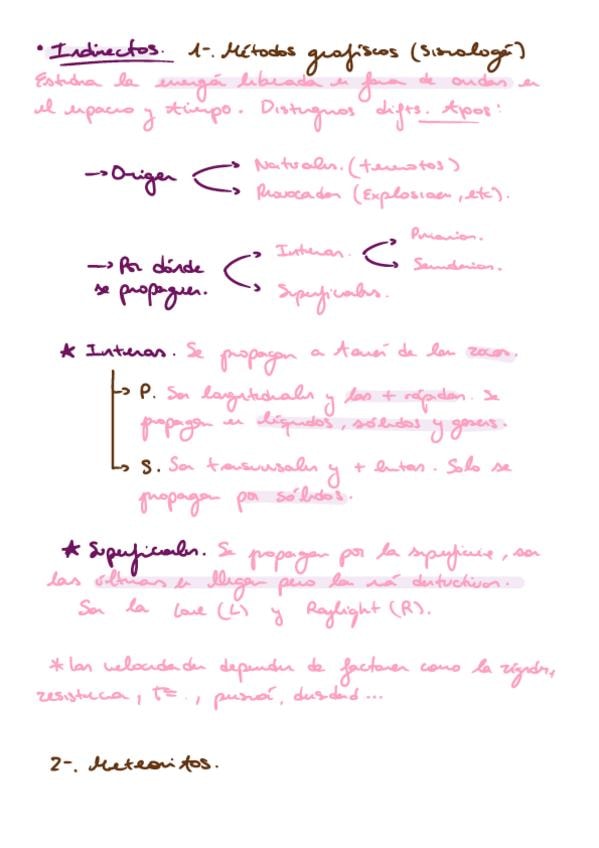 • Indirectos. 1-. Métodos grafiscos (Sismología)
Estudia la energía liberada en forma de ondas en
el espacio y tiempo. Distinguimos difts. tipos:
→ Origen
Naturales. (terremotos)
Provocados (Explosiones, etc).
→ Por dónde
se propaguen.
Internas.
Primarias.
Secundarias.
Superficiales.
★ Internas. Se propagan a través de las rocas.
→ P. Son longitudinales y las + rápidas. Se
propagan en líquidos, sólidos y gases.
→ S. Son transversales y + lentas. Solo se
propagan por sólidos.
★ Superficiales. Se propagan por la superficie, son
las últimas en llegar pero las más destructivas.
Son la Love (L) y Raylight (R).
* Las velocidades dependen de factores como la rigidez,
resistencia, tª., presión, densidad...
2-. Meteoritos.